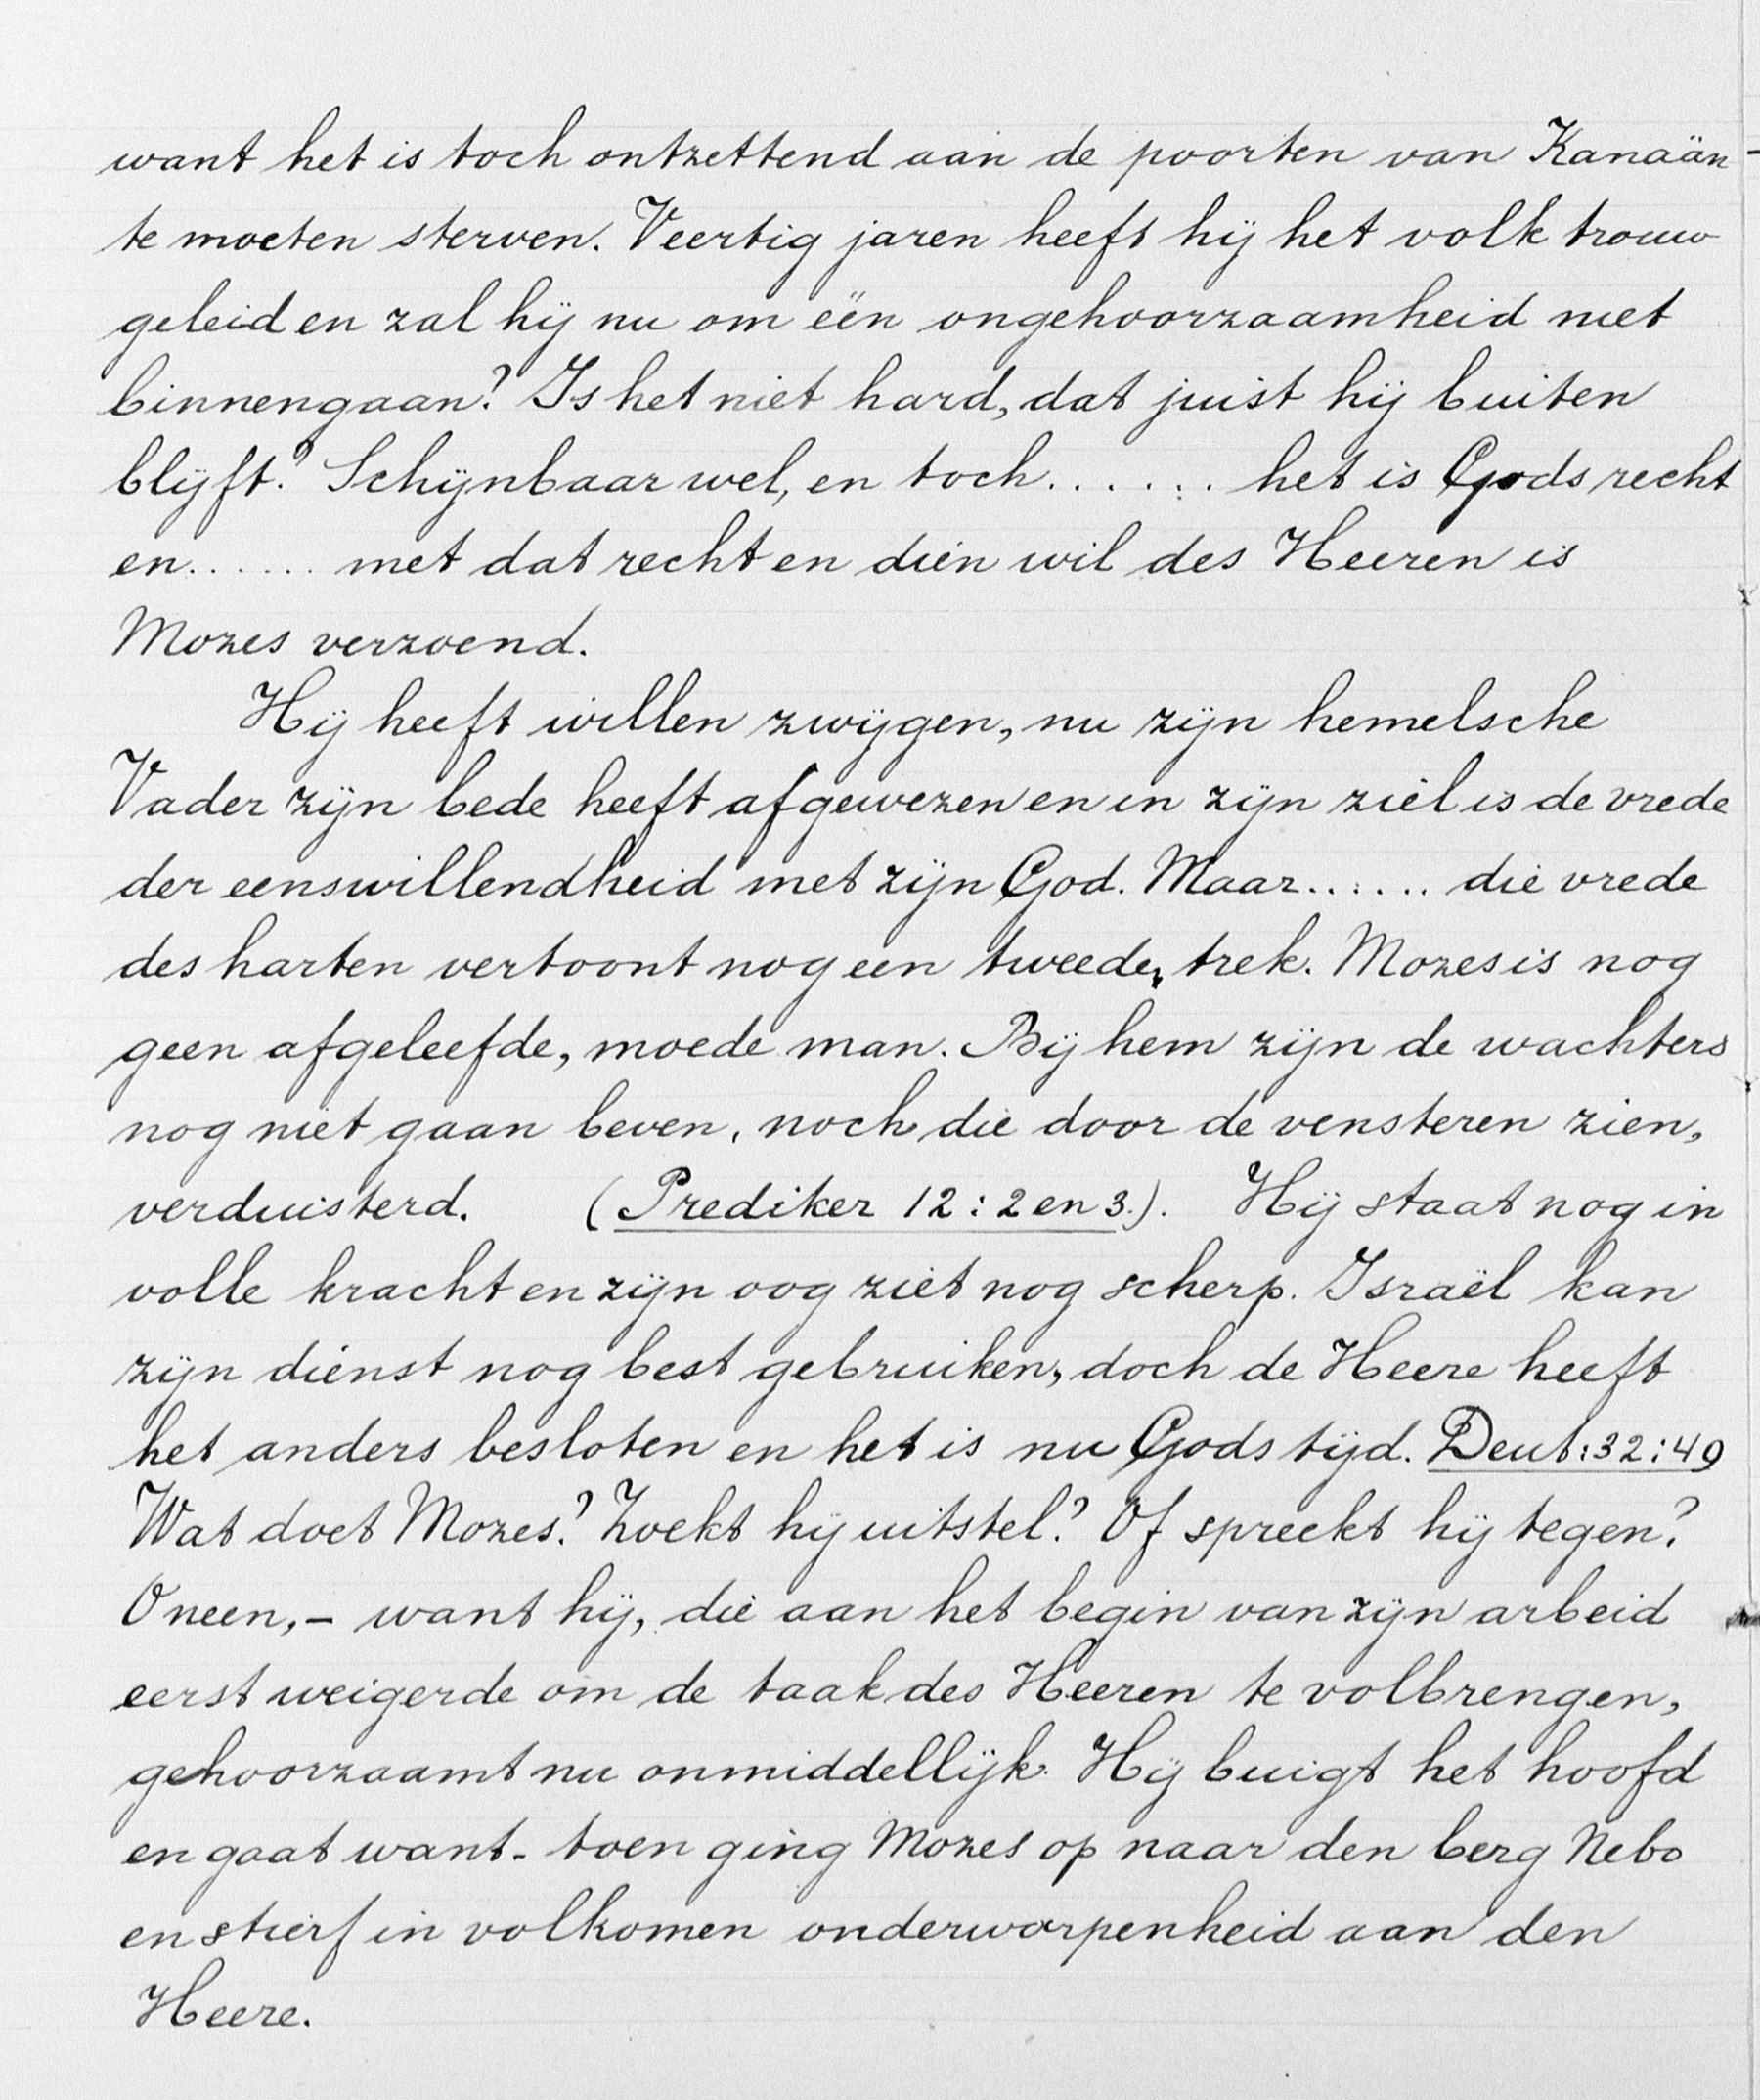 want het is toch ontzettend aan de poorten van Kanaän -
te moeten sterven. Veertig jaren heeft hij het volk trouw
geleid en zal hij nu om één ongehoorzaamheid niet
binnengaan? Is het niet hard, dat juist hij buiten
blijft? Schijnbaar wel, en toch...... het is Gods recht
en...... met dat recht en dien wil des Heeren is
Mozes verzoend.
Hij heeft willen zwijgen, nu zijn hemelsche
Vader zijn bede heeft afgewezen en in zijn ziel is de vrede
der eenswillendheid met zijn God. Maar...... die vrede
des harten vertoont nog een tweede, trek. Mozes is nog
geen afgeleefde, moede man. Bij hem zijn de wachters
nog niet gaan beven, noch die door de vensteren zien,
verduisterd. (Prediker 12:2 en 3.). Hij staat nog in
volle kracht en zijn oog ziet nog scherp. Israël kan
zijn dienst nog best gebruiken, doch de Heere heeft
het anders besloten en het is nu Gods tijd. Deut:32:49
Wat doet Mozes? Zoekt hij uitstel? Of spreekt hij tegen?
O neen,- want hij, die aan het begin van zijn arbeid
eerst weigerde om de taak des Heeren te volbrengen,
gehoorzaamt nu onmiddellijk. Hij buigt het hoofd
en gaat want- toen ging Mozes op naar den berg Nebo
en stierf in volkomen onderworpenheid aan den
Heere.